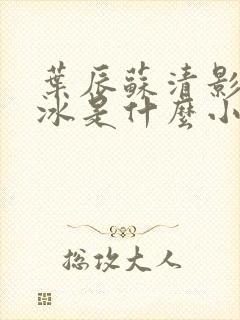 葉辰蘇清影
冰是什麼小
總攻大人